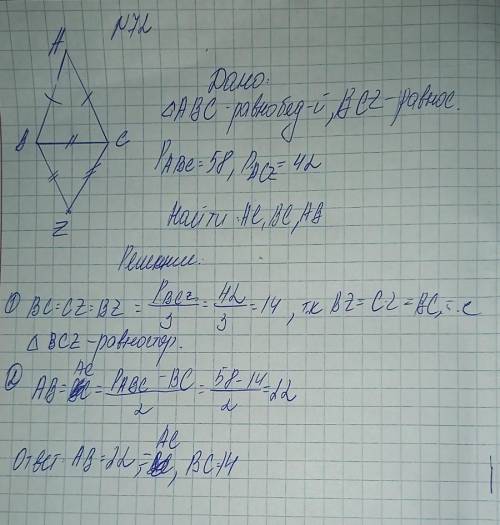 N72
A
B
C
Z
Дано:
△ABC-равнобед-й, BCZ-равнос.
P ABC = 58, P BCZ = 42
Найти: AC, BC, AB
Решение:
① BC = CZ = BZ = P BCZ / 3 = 42 / 3 = 14, т.к BZ = CZ = BC, т.е
△ BCZ - равностор.
② AB = AC = P ABC - BC / 2 = 58 - 14 / 2 = 22
Ответ AB = 22, = AC, BC = 14